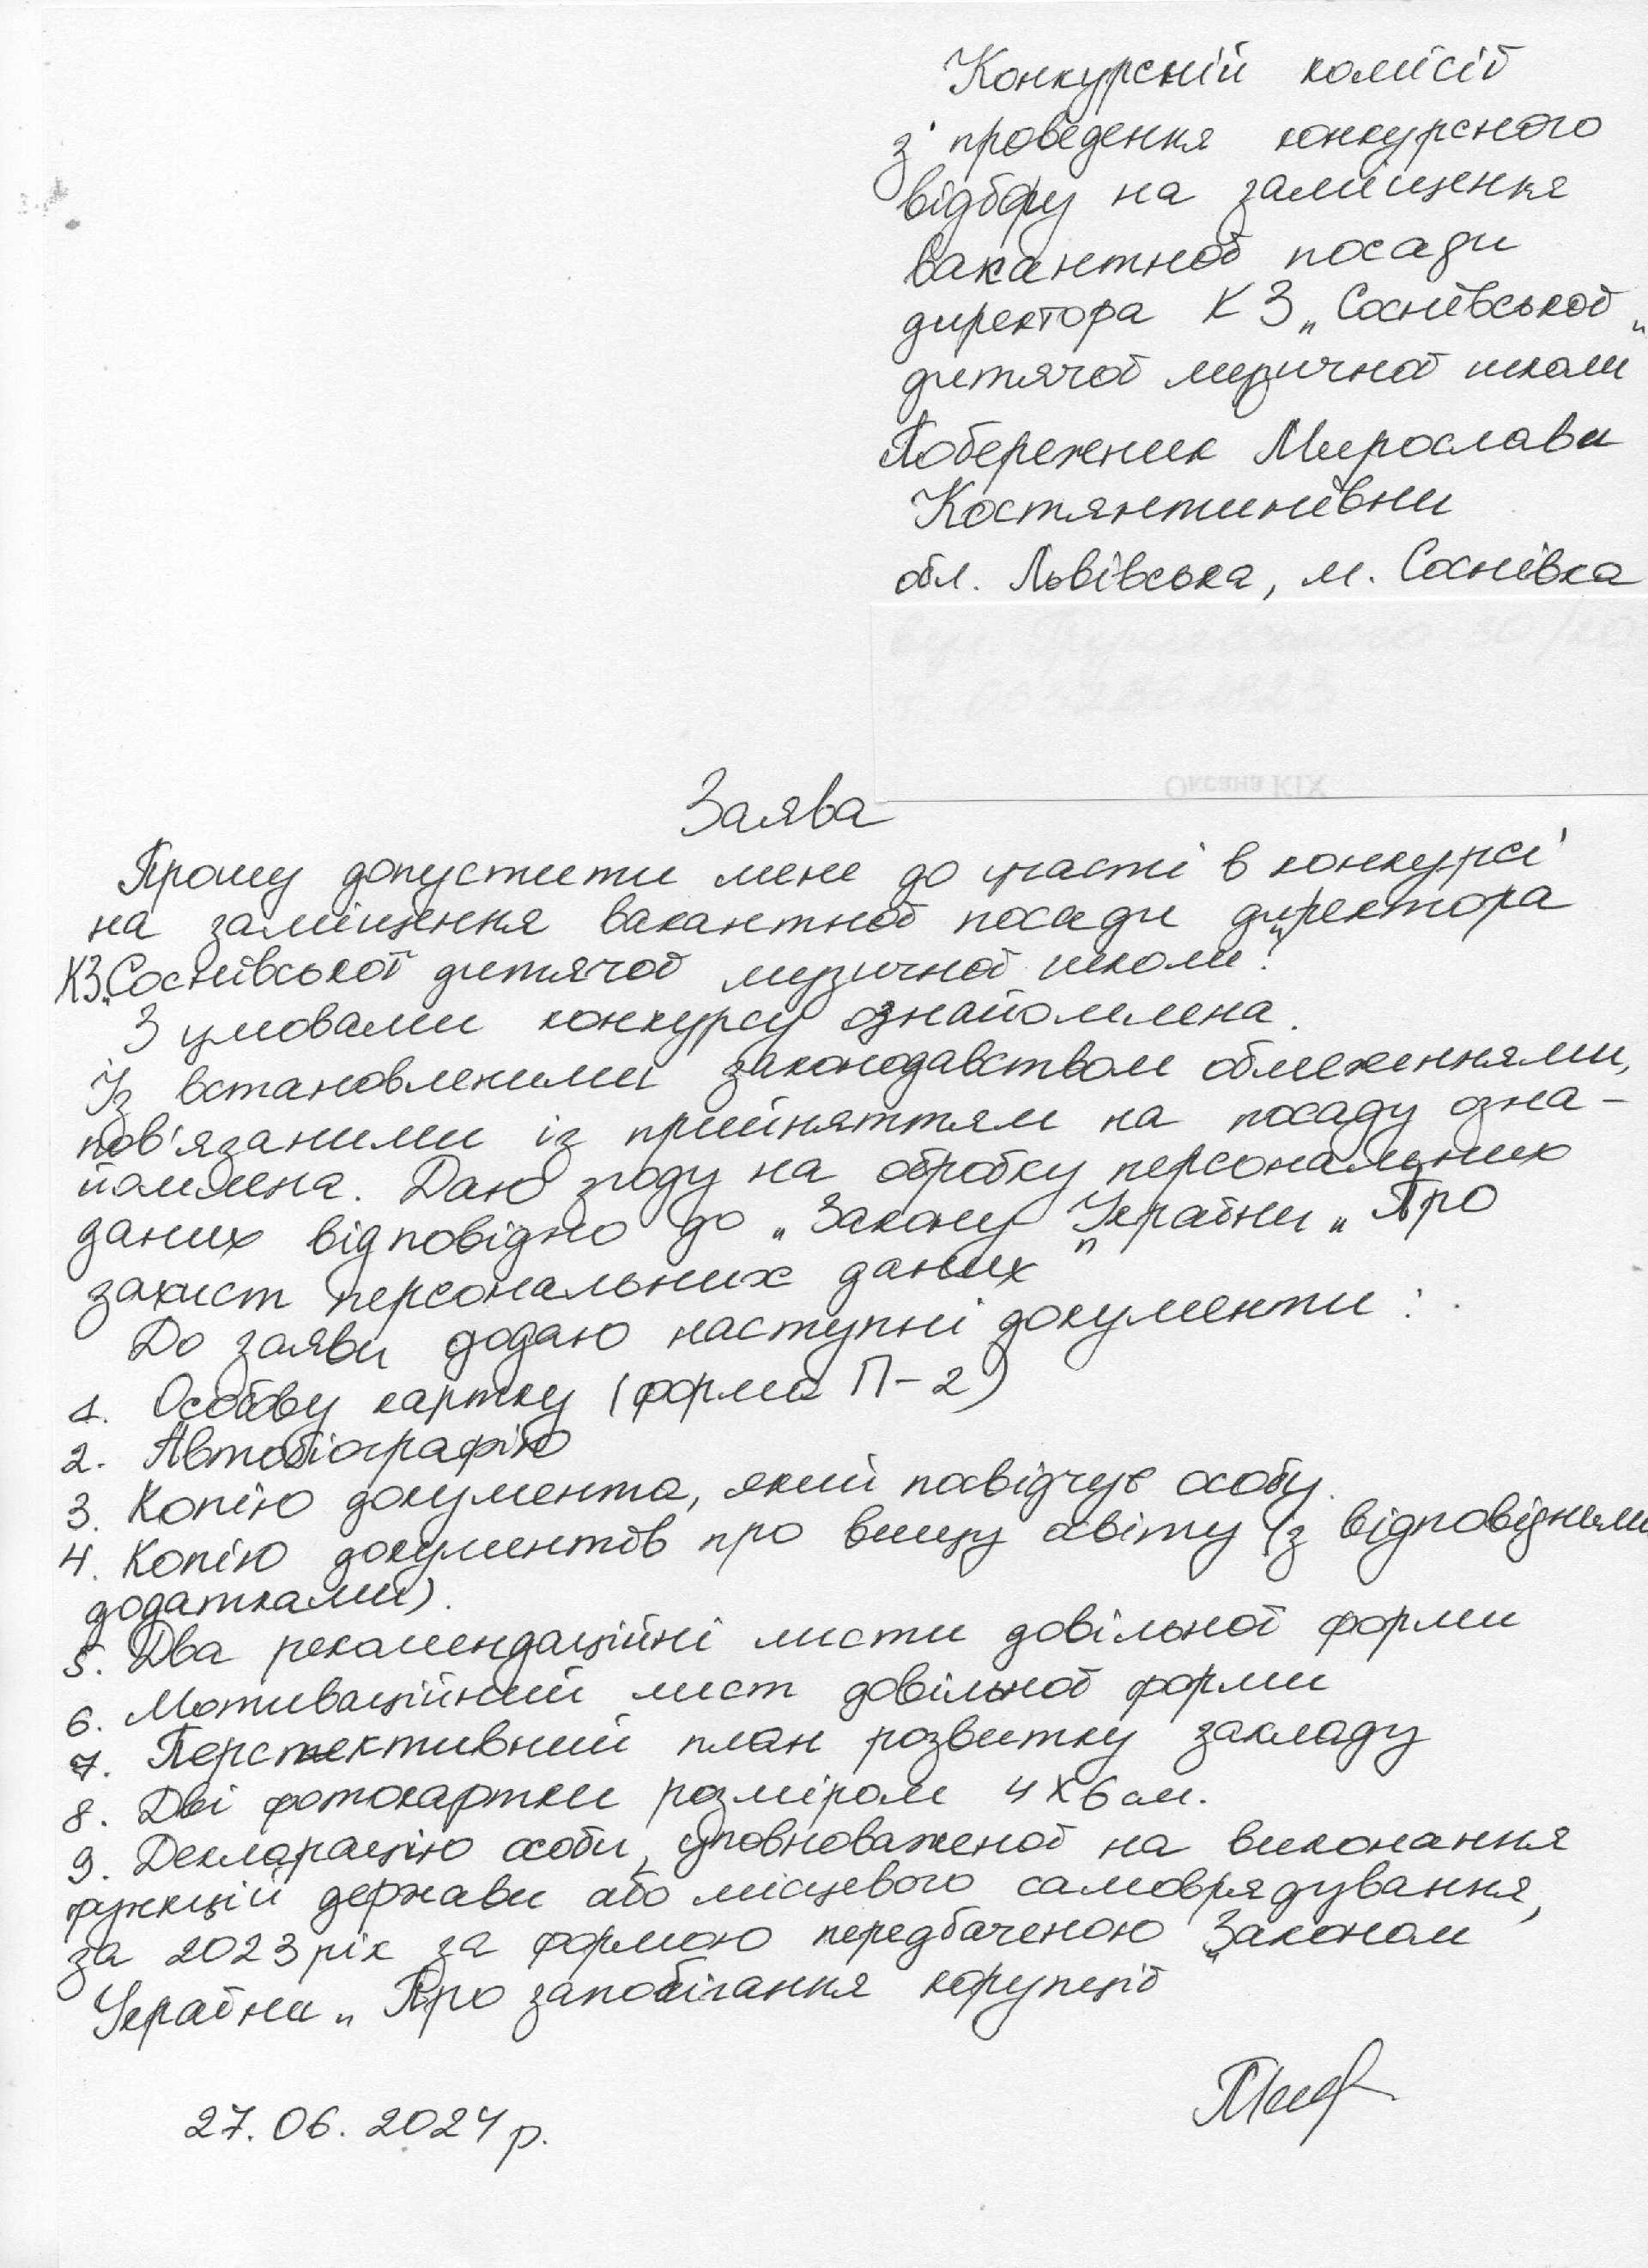 Конкурсній комісії
з проведення конкурсного
відбору на заміщення
вакантної посади
директора КЗ „Соснівської „
дитячої музичної школи
Побережник Мирослави
Костянтинівни
обл. Львівська, м. Соснівка
Оксана КІХ
Заява
Прошу допустити мене до участі в конкурсі
на заміщення вакантної посади директора
КЗ „Соснівської дитячої музичної школи".
З умовами конкурсу ознайомлена.
Із встановленими законодавством обмеженнями,
пов'язаними із прийняттям на посаду озна-
йомлена. Даю згоду на обробку персональних
даних відповідно до „Закону України „ Про
захист персональних даних"
До заяви додаю наступні документи :
1. Особову картку (форма П-2)
2. Автобіографію
3. Копію документа, який посвідчує особу.
4. Копію документів про вищу освіту (з відповідними
додатками).
5. Два рекомендаційні листи довільної форми
6. Мотиваційний лист довільної форми
7. Перспективний план розвитку закладу
8. Дві фотокартки розміром 4 х 6 см.
9. Декларацію особи, уповноваженої на виконання
функцій держави або місцевого самоврядування,
за 2023 рік за формою передбаченою „Законом
України „ Про запобігання корупції
27. 06. 2024 р.